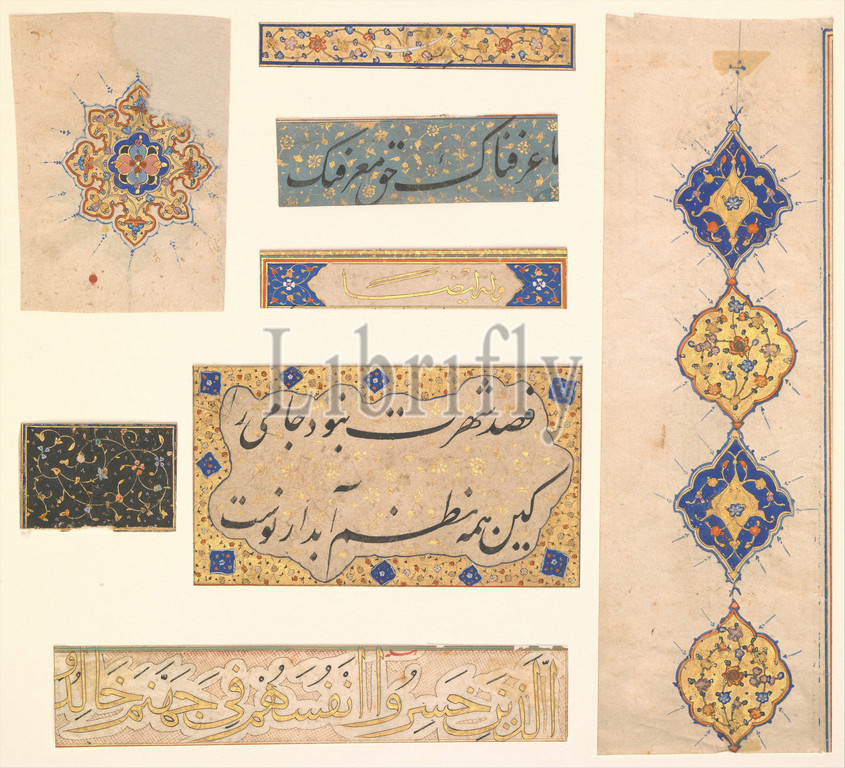 ما عرفناك حق معرفتک
وله ایضا
Librifly
قصد شهرت نبود جامی را
کین همه نظم آبدار نوشت
الَّذِينَ خَسِرُوا أَنْفُسَهُمْ فِي جَهَنَّمَ خَالِدُو